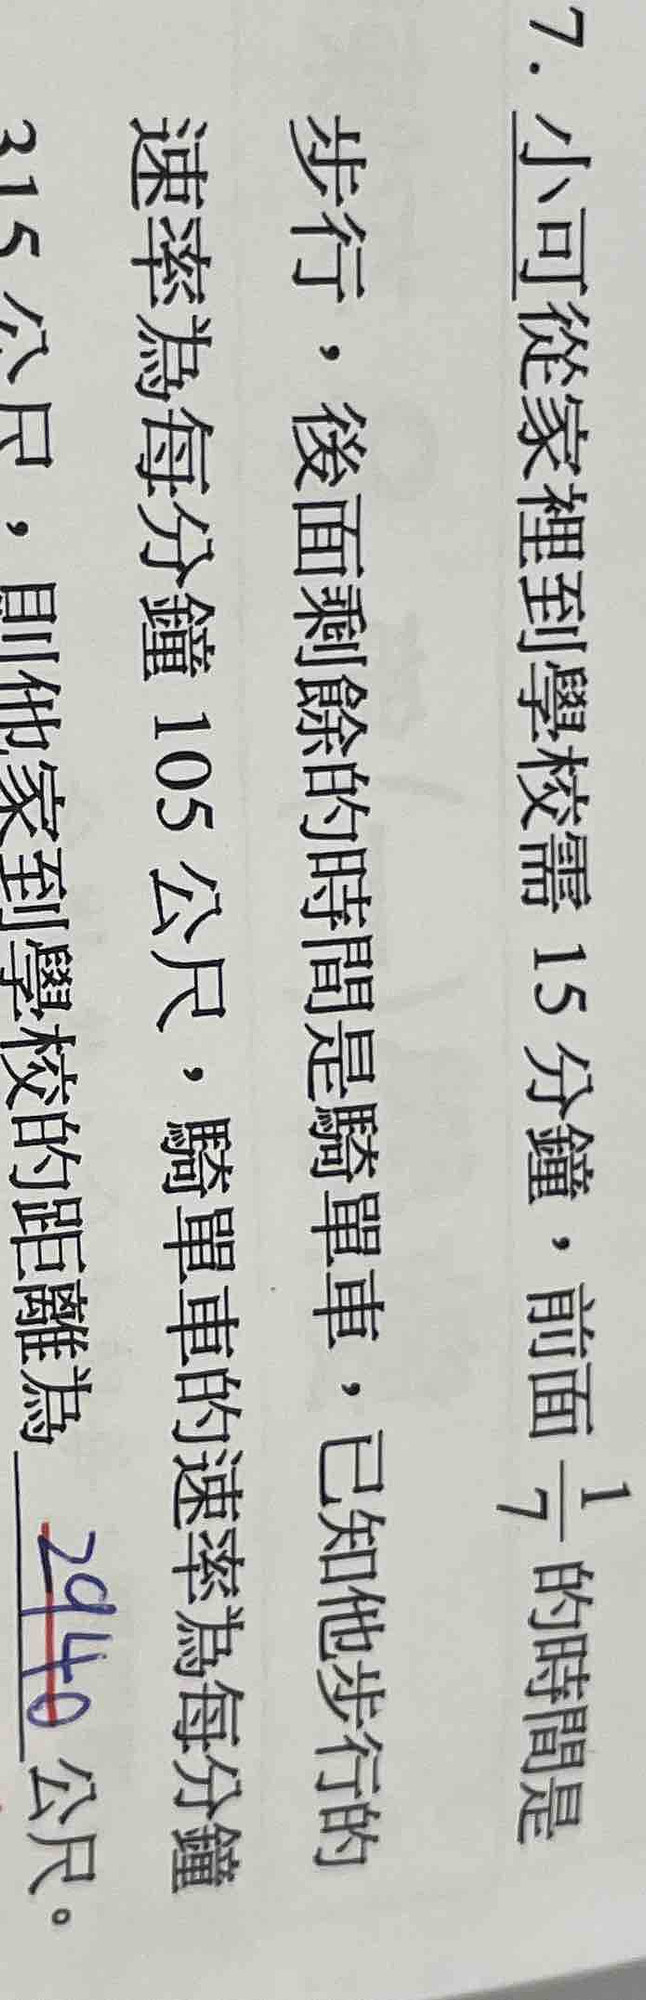 7. 小可從家裡到學校需 15 分鐘，前面 1/7 的時間是
步行，後面剩餘的時間是騎單車，已知他步行的
速率為每分鐘 105 公尺，騎單車的速率為每分鐘
315 公尺，則他家到學校的距離為 2940 公尺。